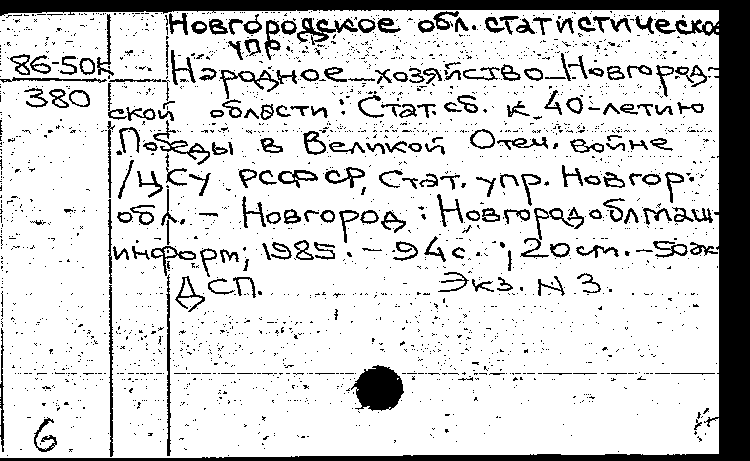 Новгородское обл. статистическое
упр.
86-50к
Народное хозяйство Новгород-
380
ской области : Стат. сб. к 40-летию
Победы в Великой Отеч. войне
/ЦСУ РСФСР, Стат. упр. Новгор.
обл. – Новгород : Новгородоблмаш-
информ, 1985. – 94 с. ; 20 cm. – 50 эк
ДСП. Экз. N 3.
6